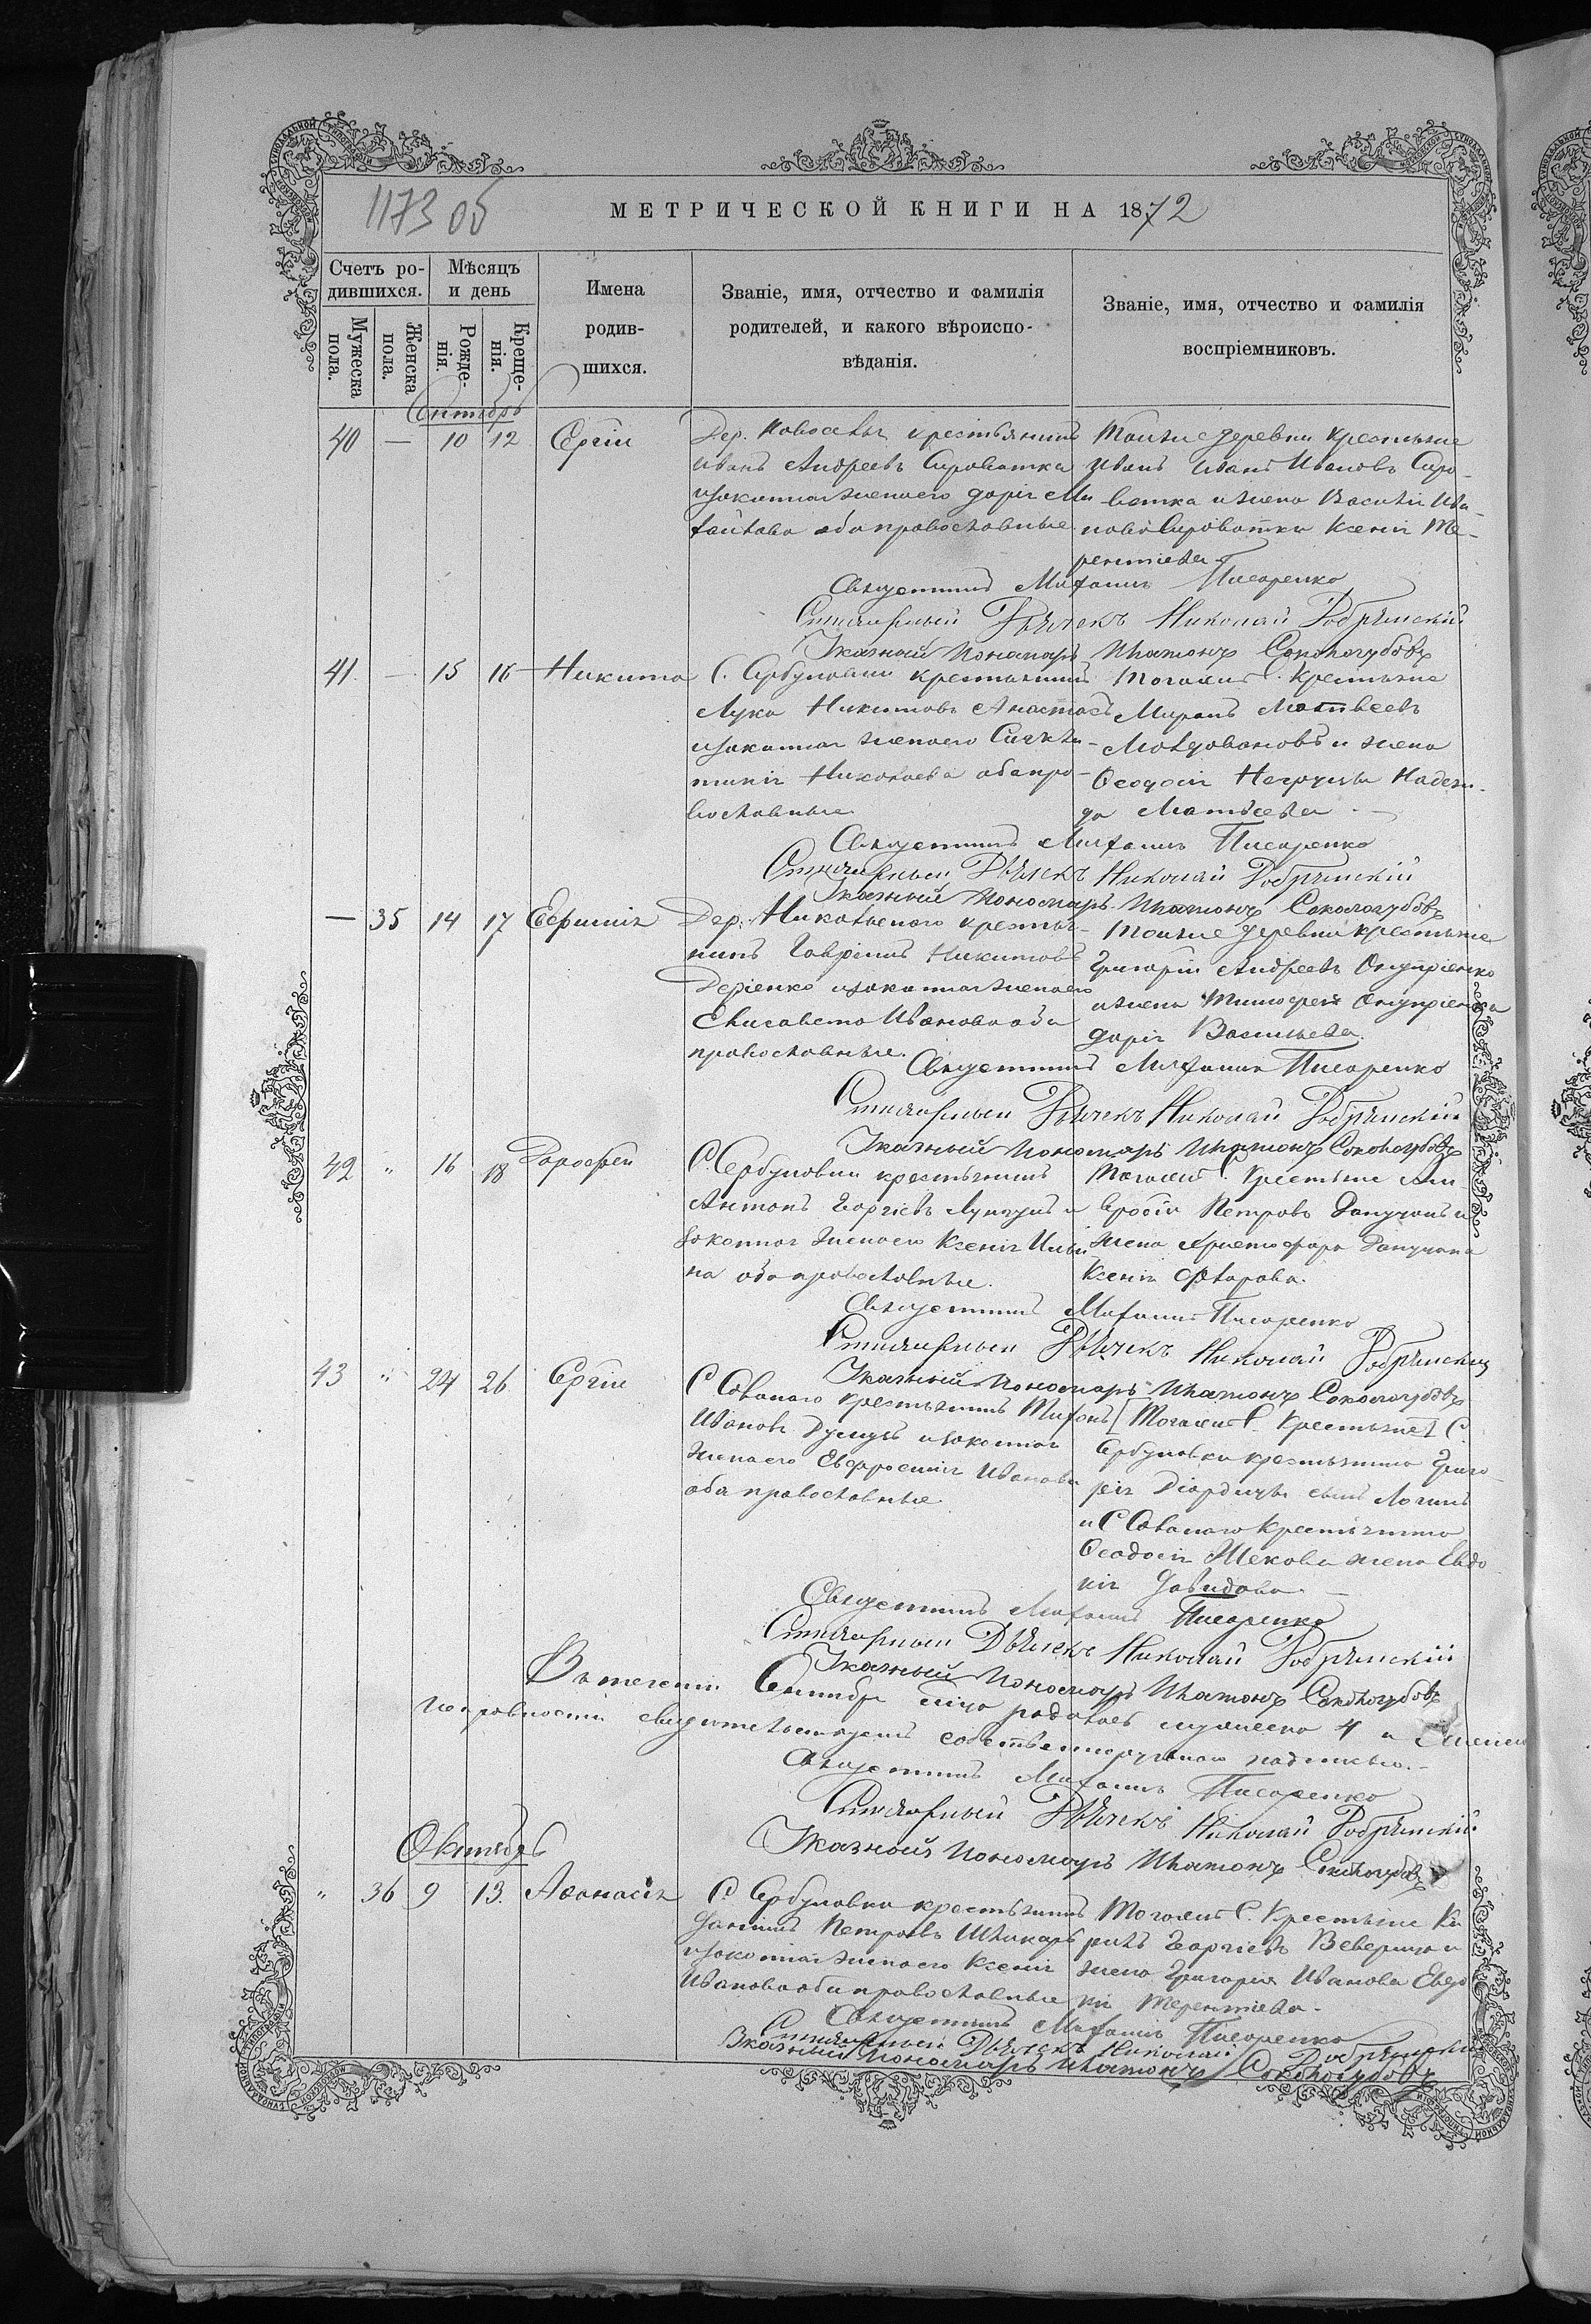 1173 об
МЕТРИЧЕСКОЙ КНИГИ НА 1872
Счетъ ро-
дившихся.
Мѣсяцъ
и день
Имена
родив-
шихся.
Званіе, имя, отчество и фамилія
родителей, и какого вѣроиспо-
вѣданія.
Званіе, имя, отчество и фамилія
воспріемниковъ.
Мужеска
пола.
Женска
пола.
Рожде-
нія.
Креще-
нія.
Сентябрь
40 — 10 12 Сергій
Дер. крестьянинъ
Иванъ Андреевъ Сироватка
изаконная жена его Дарія Ми
хайлова оба православные.
Тойже деревни крестьяне
Иванъ Ивановъ Сиро-
ватка и жена Василія Ива-
нова Сироватки Ксенія Те-
рентіева
Священникъ Михаилъ Писаренко
Стихарный Дьячекъ Николай Добрянскій
Указный Пономарь Платонъ Сокологубовъ
41. — 15 16 Никита
С. Сербуловки крестьянинъ
Лука Никитовъ
изаконная жена его
Николаева обапро-
вославные
Тогожъ С. Крестьяне
Миронъ Матвеевъ
Молдовановъ и жена
Феодосія Надеж-
да Матвеева
Священникъ Михаилъ Писаренко
Стихарный Дьячекъ Николай Добрянскій
Указный Пономарь Платонъ Сокологубовъ
— 35 14 17 Евфимія
Дер. Николаевскаго крестья-
нинъ Гавріилъ Никитовъ
Деріенко изаконная жена его
Елисавета Иванова оба
православные.
Тойже деревни крестьяне
Григорій Андреевъ Онупріенко
и жена Тимофея Онупріенка
Дарія Васильева
Священникъ Михаилъ Писаренко
Стихарный Дьячекъ Николай Добрянскій
Указный Пономарь Платонъ Сокологубовъ
42 " 16 18 Дорофей
С. Сербуловки крестьянинъ
Антонъ Георгіевъ и
законная жена его Ксенія Ильи
на оба православные.
Тогожъ С. Крестьяне Ам-
вросій Петровъ и
жена Христофора
Ксенія
Священникъ Михаилъ Писаренко
Стихарный Дьячекъ Николай Добрянскій
Указный Пономарь Платонъ Сокологубовъ
43 " 24 26 Сергій
С крестьянинъ Тихонъ
Ивановъ изаконная
жена его Евфросинія Иванова
оба православные
[Тогожъ С. Крестьяне] С.
Сербуловки крестьянина Григо-
рія сынъ Логинъ
и С крестьянина
Феодосія жена Евдо
кія Давидова.
Священникъ Михаилъ Писаренко
Стихарный Дьячекъ Николай Добрянскій
Указный Пономарь Платонъ Сокологубовъ
Въ теченіи Сентябр родилось мужеска 4 и
свидетельствуемъ собственноручною подписью.
Священникъ Михаилъ Писаренко
Стихарный Дьячекъ Николай Добрянскій
Указный Пономарь Платонъ Сокологубовъ
Октябрь
" 36 9 13. Афанасія
С. Сербуловки крестьянинъ
Петровъ
изаконная жена его Ксенія
Иванова оба православные
Тогожъ С. Крестьяне Ки
рилъ Георгіевъ и
жена Григорія Иванова Евдо
кія Терентіева.
Священникъ Михаилъ Писаренко
Стихарный Дьячекъ Николай Добрянскій
Указный Пономарь Платонъ Сокологубовъ